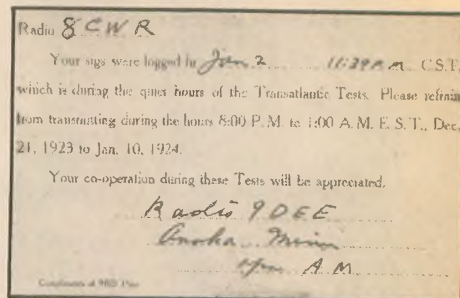 Radio 8CWR
Your sigs were logged in Jan 2 11:39 P.M. C.S.T.
which is during the quiet hours of the Transatlantic Tests. Please refrain
from transmitting during the hours 8:00 P. M. to 1:00 A. M. E. S. T., Dec.
21, 1923 to Jan. 10, 1924.
Your co-operation during these Tests will be appreciated.
Radio 9DEE
Anoka Minn
A.M.
Compliments of